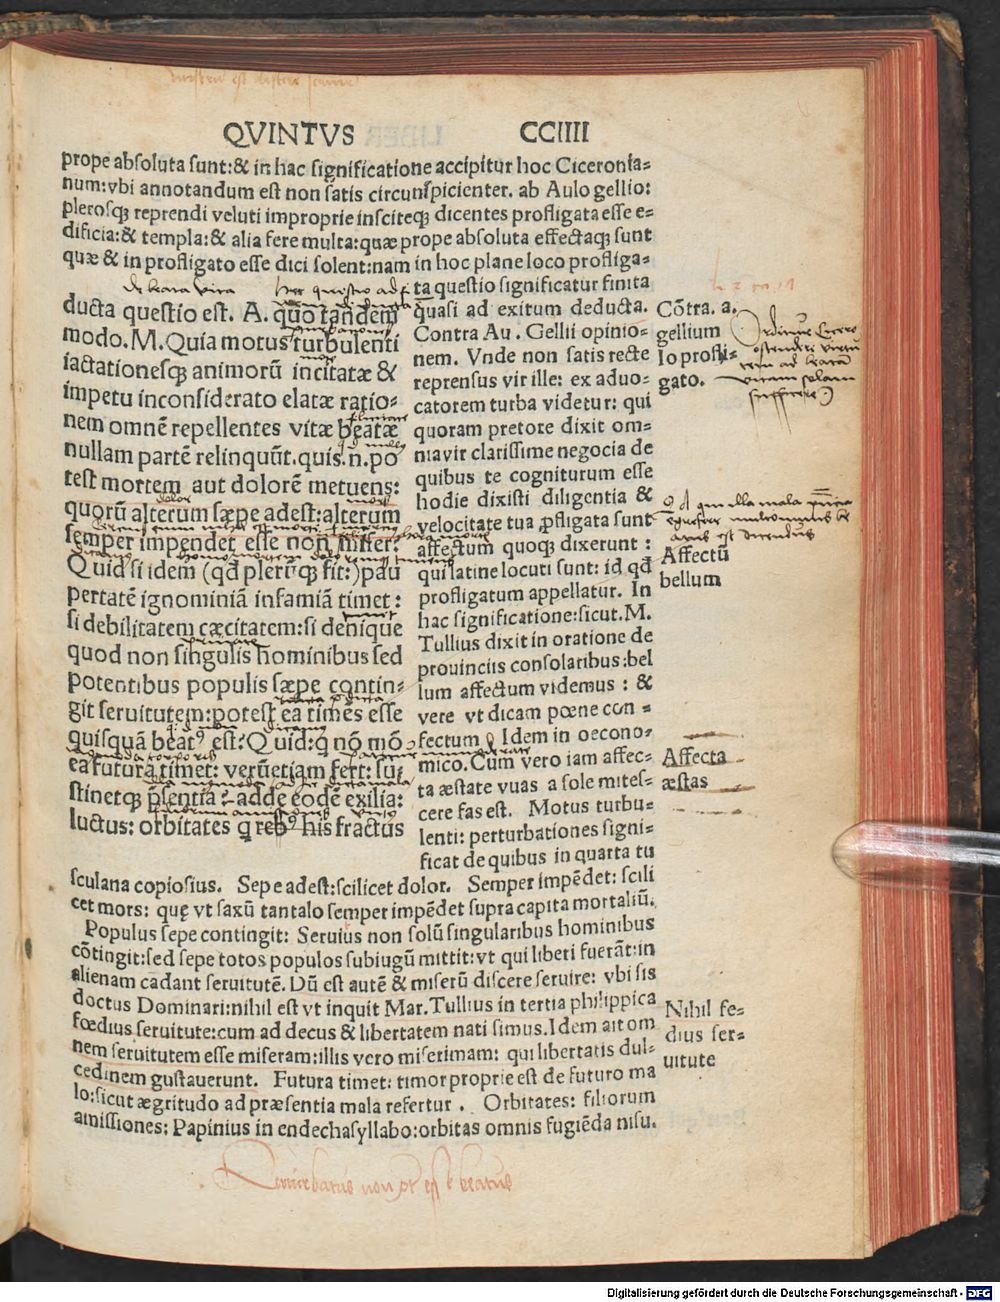 QVINTVS CCIIII
prope absoluta sunt:& in hac significatione accipitur hoc Ciceronia=
num:vbi annotandum est non satis circunspicienter. ab Aulo gellio:
plerosq; reprendi veluti improprie insciteq; dicentes profligata esse e=
dificia:& templa:& alia fere multa:quæ prope absoluta effectaq; sunt
quæ & in profligato esse dici solent:nam in hoc plane loco profliga=
de beata vita
ducta questio est. A. quo tandem
modo. M. Quia motus turbulenti
iactationesq; animorū incitatæ &
impetu inconsiderato elatæ ratio=
nem omnē repellentes vitæ beatæ
nullam partē relinquūt.quis.n.po
test mortem aut dolorē metuens:
quorū alterum sæpe adest:alterum
semper impendet esse non miser?
Quid si idem (qđ plerūq; fit:) pau
pertatē ignominiā infamiā timet:
si debilitatem cæcitatem:si denique
quod non singulis hominibus sed
potentibus populis sæpe contin=
git seruitutem:potest ea timēs esse
quisquā beatꝰ est? Quid:q̄ nō mō
ea futura timet: verūetiam fert: su
stinetq; p̄sentia? adde eodē exilia:
luctus: orbitates q̄ rebꝰ his fractus
ta questio significatur finita
quasi ad exitum deducta.
Contra Au. Gellii opinio=
nem. Vnde non satis recte
reprensus vir ille: ex aduo=
catorem turba videtur: qui
quoram pretore dixit om=
niavir clarissime negocia de
quibus te cogniturum esse
hodie dixisti diligentia &
velocitate tua ꝓfligata sunt
affectum quoq; dixerunt :
qui latine locuti sunt: id qđ
profligatum appellatur. In
hac significatione:sicut.M.
Tullius dixit in oratione de
prouinciis consolaribus:bel
lum affectum videmus : &
vere vt dicam pœne con =
fectum. Idem in oecono=
mico.Cum vero iam affec=
ta æstate vuas a sole mites=
cere fas est. Motus turbu=
lenti: perturbationes signi=
ficat de quibus in quarta tu
Cōtra. a.
gellium
Io profli=
gato.
Affectū
bellum
Affecta
æstas
sculana copiosius. Sepe adest:scilicet dolor. Semper impēdet: scili
cet mors: quę vt saxū tantalo semper impēdet supra capita mortaliū.
Populus sepe contingit: Seruius non solū singularibus hominibus
cōtingit:sed sepe totos populos subiugū mittit:vt qui liberi fuerāt:in
alienam cadant seruitutē. Dū est autē & miserū discere seruire: vbi sis
doctus Dominari:nihil est vt inquit Mar.Tullius in tertia philippica
fœdius seruitute:cum ad decus & libertatem nati simus.Idem ait om
nem seruitutem esse miseram:illis vero miserimam: qui libertatis dul=
cedinem gustauerunt. Futura timet: timor proprie est de futuro ma
lo:sicut ægritudo ad præsentia mala refertur . Orbitates: filiorum
amissiones: Papinius in endechasyllabo:orbitas omnis fugiēda nisu.
Nihil fe=
dius ser=
uitute
Digitalisierung gefördert durch die Deutsche Forschungsgemeinschaft - DFG